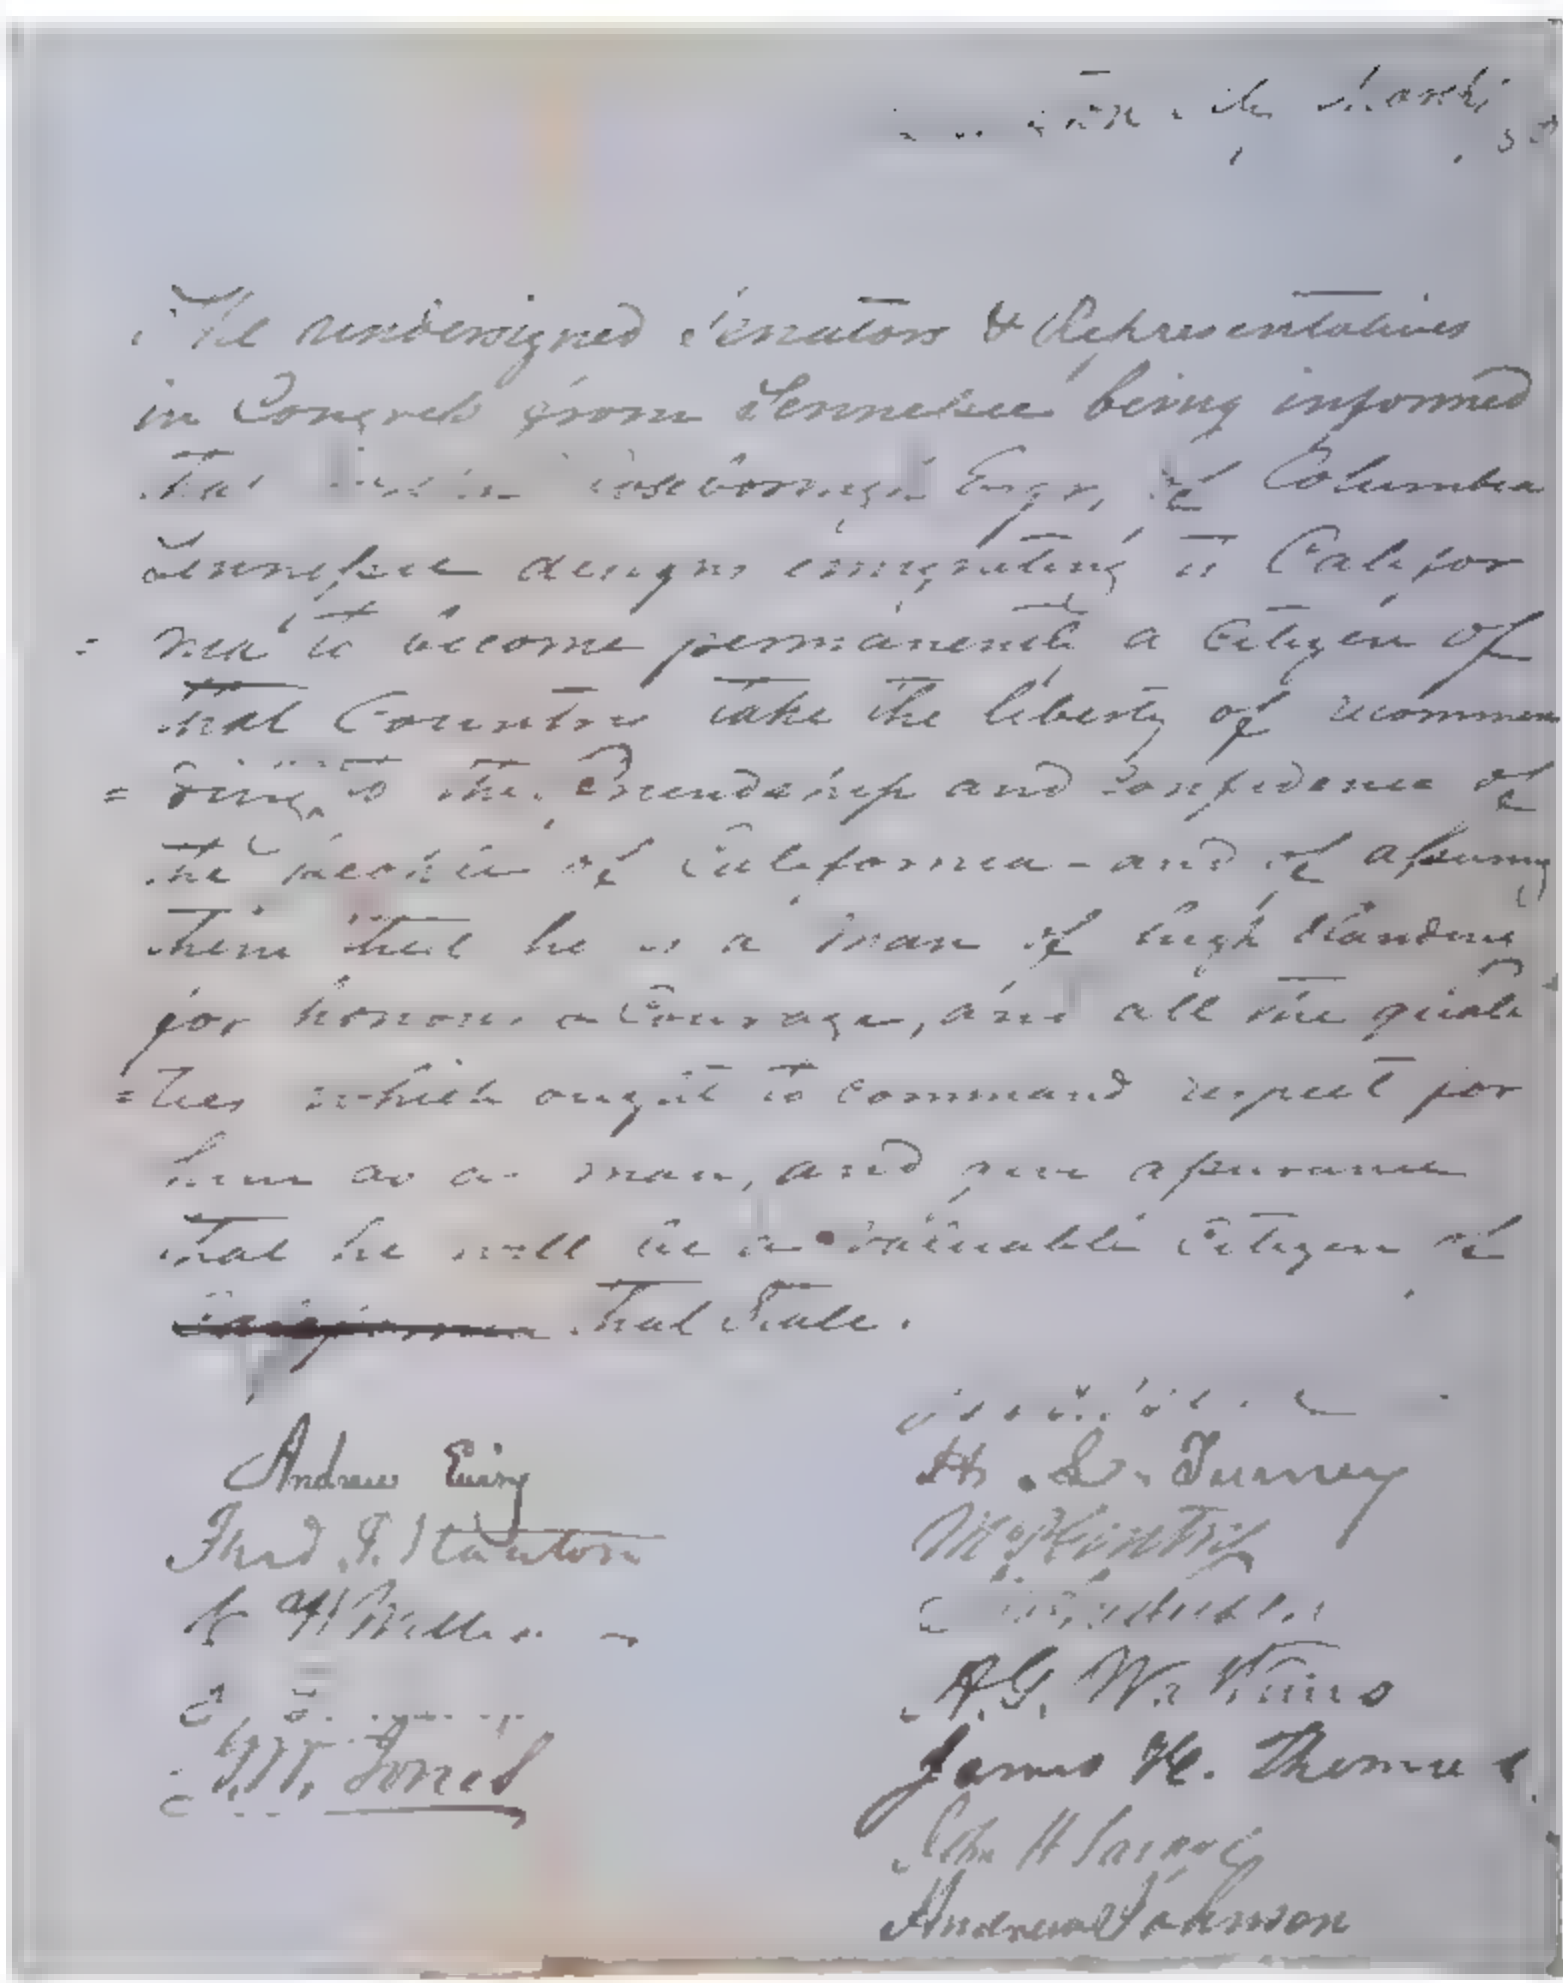 The undersigned Senators & Representatives
in Congress from Tennessee being informed
that Roseborough Esqr, of Columbia
Tennessee designs emigrating to Califor
= nia to become permanently a Citizen of
that Country take the liberty of recommen
= ding to the Friendship and Confidence of
the people of California - and of assuring
them that he is a man of high standing
for honour & Courage, and all the quali
= ties which ought to command respect for
him as a man, and give assurance
that he will be a valuable Citizen of
California that State.
Andrew Ewing
Fred P. Stanton
G. W. Jones
H. L. Turney
M P Gentry
A. G. Watkins
James H. Thomas
John H Savage
Andrew Johnson